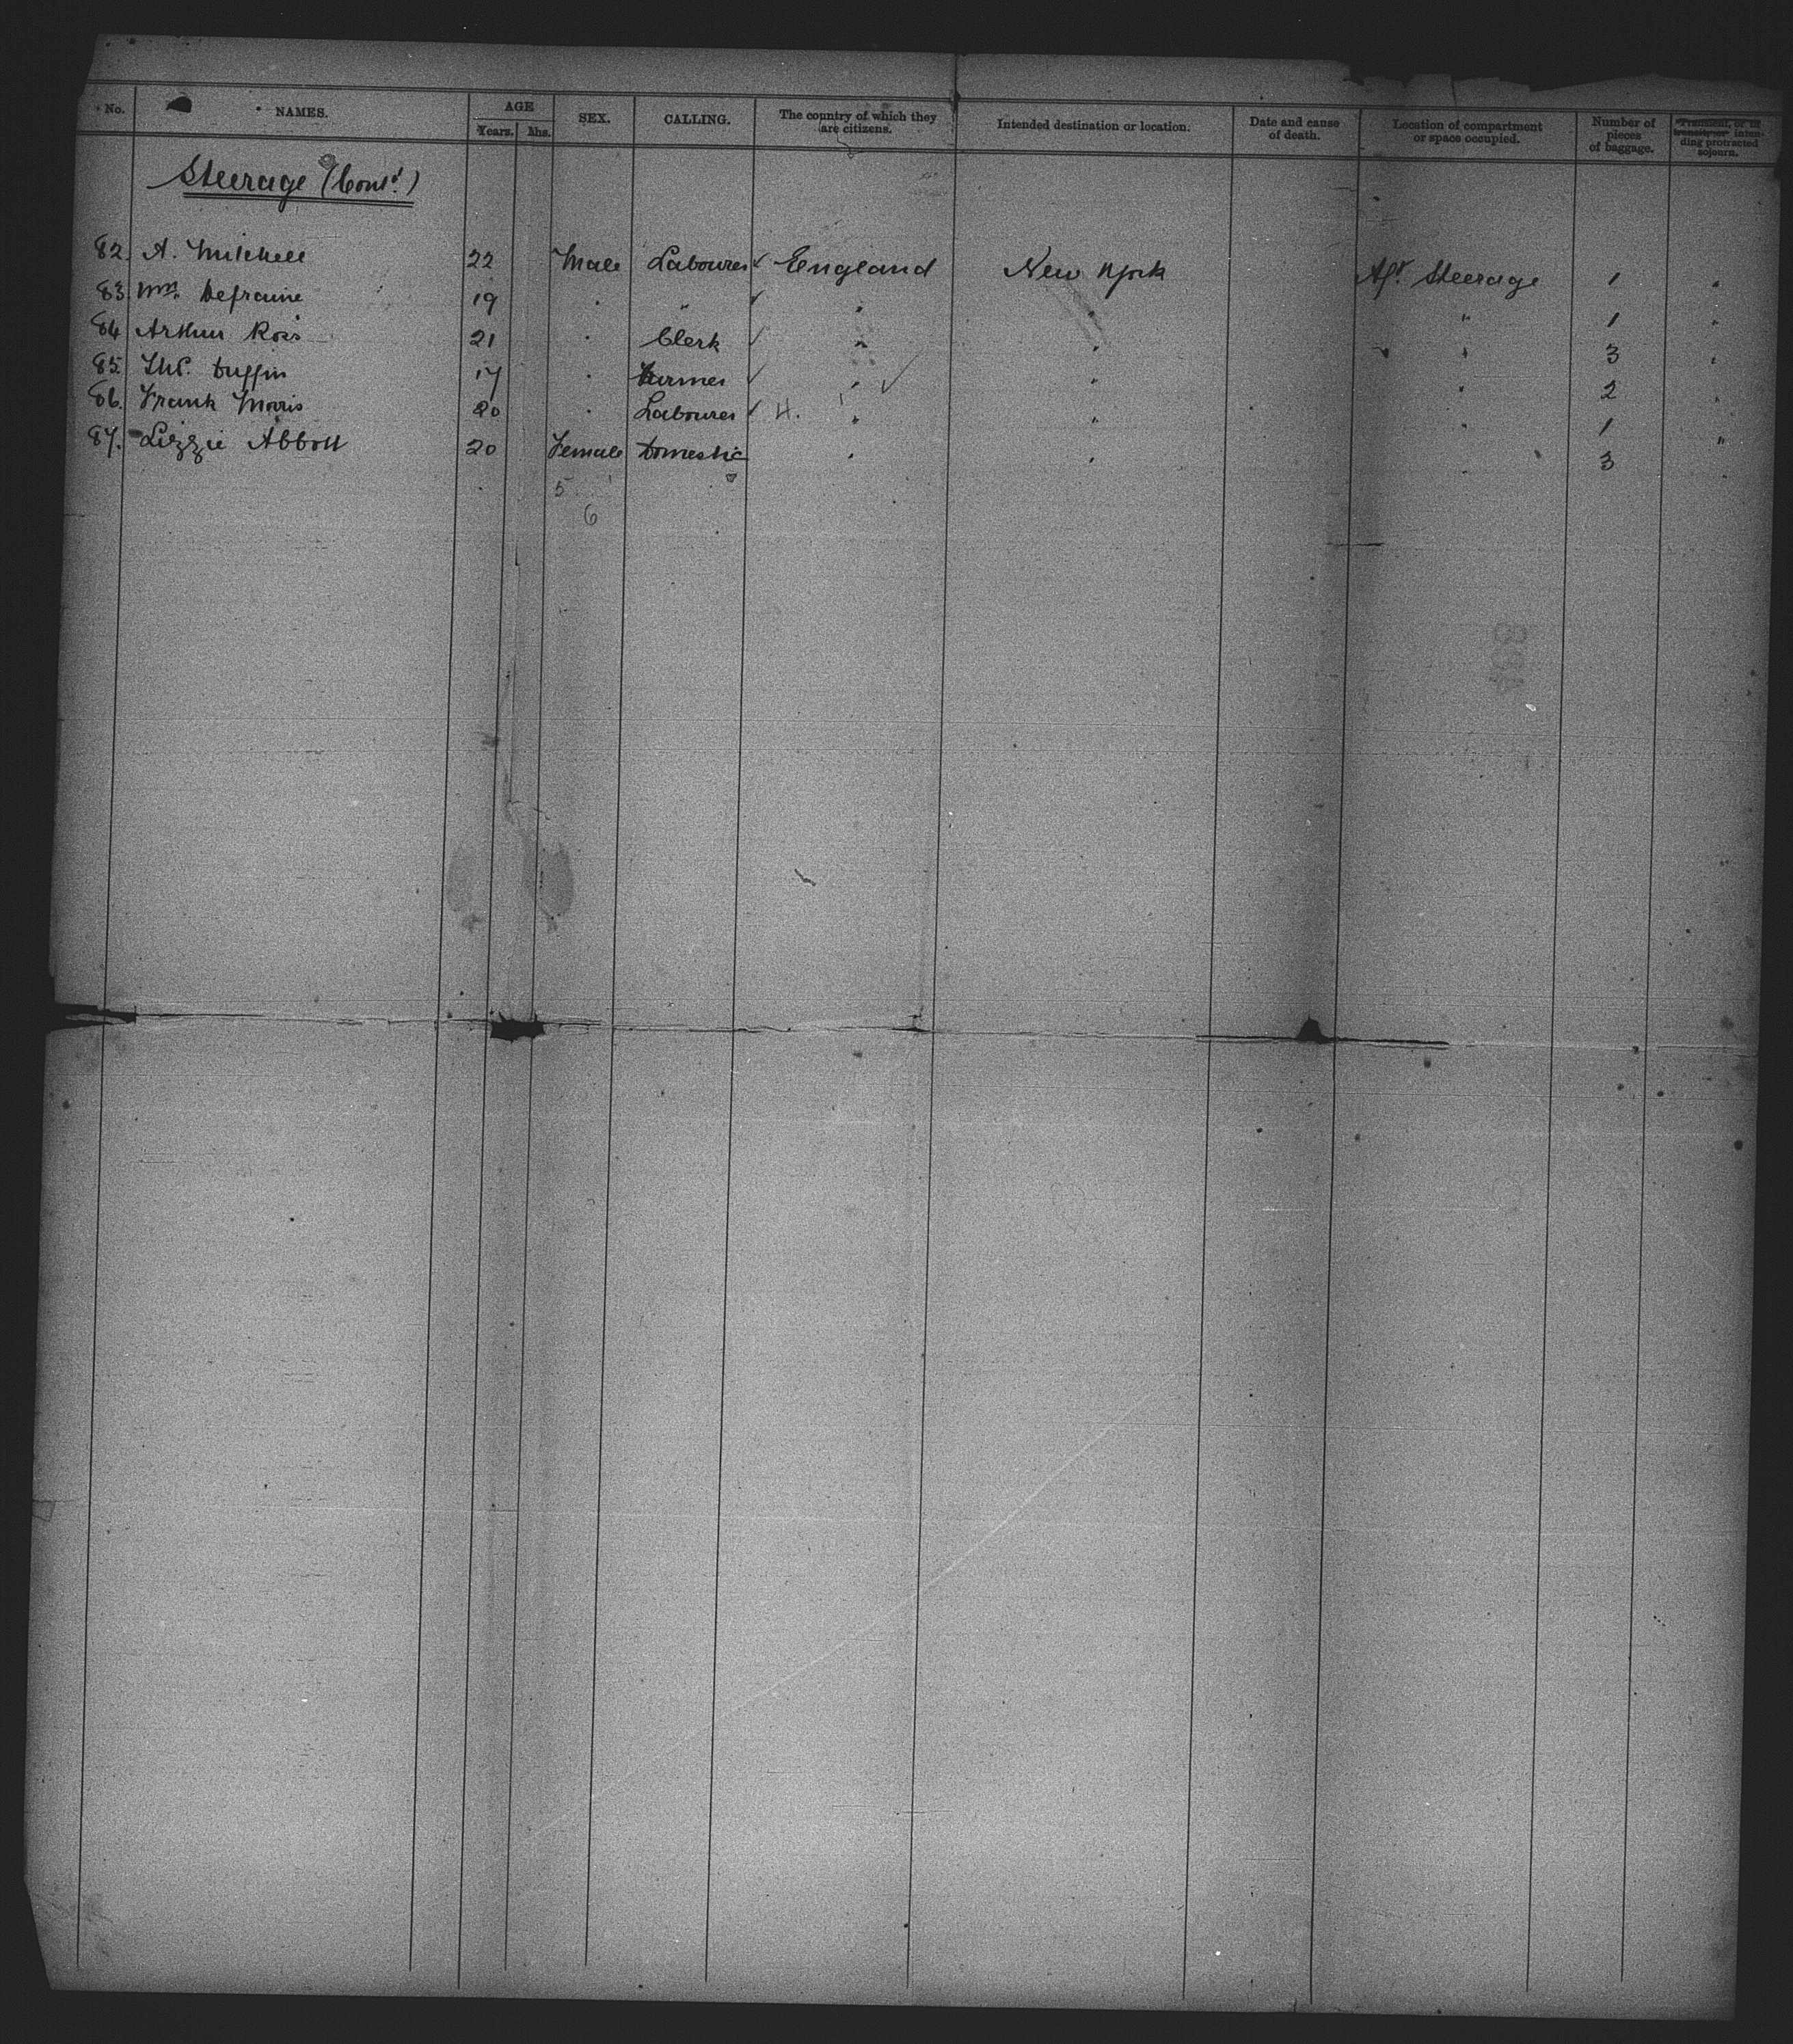 No. NAMES. AGE Years. Mhs. SEX. CALLING. The country of which they are citizens. Intended destination or location. Date and cause of death. Location of compartment or space occupied. Number of pieces of baggage. inten- ding protracted sojourn.
Steerage (Cont^d.)
82. A. Mitchell 22 Male Labourer ✓ England New York Af^t Steerage 1 "
83. W^m. Defraine 19 " " ✓ " " " 1 "
84 Arthur Ross 21 " Clerk ✓ " " " 3 "
85. Tho^s. Duffin 17 " Farmer ✓ " ✓ " " 2 "
86. Frank Morris 20 " Labourer ✓ 4. " " " 1 "
87. Lizzie Abbott 20 Female Domestic " " " 3 "
5 1
6